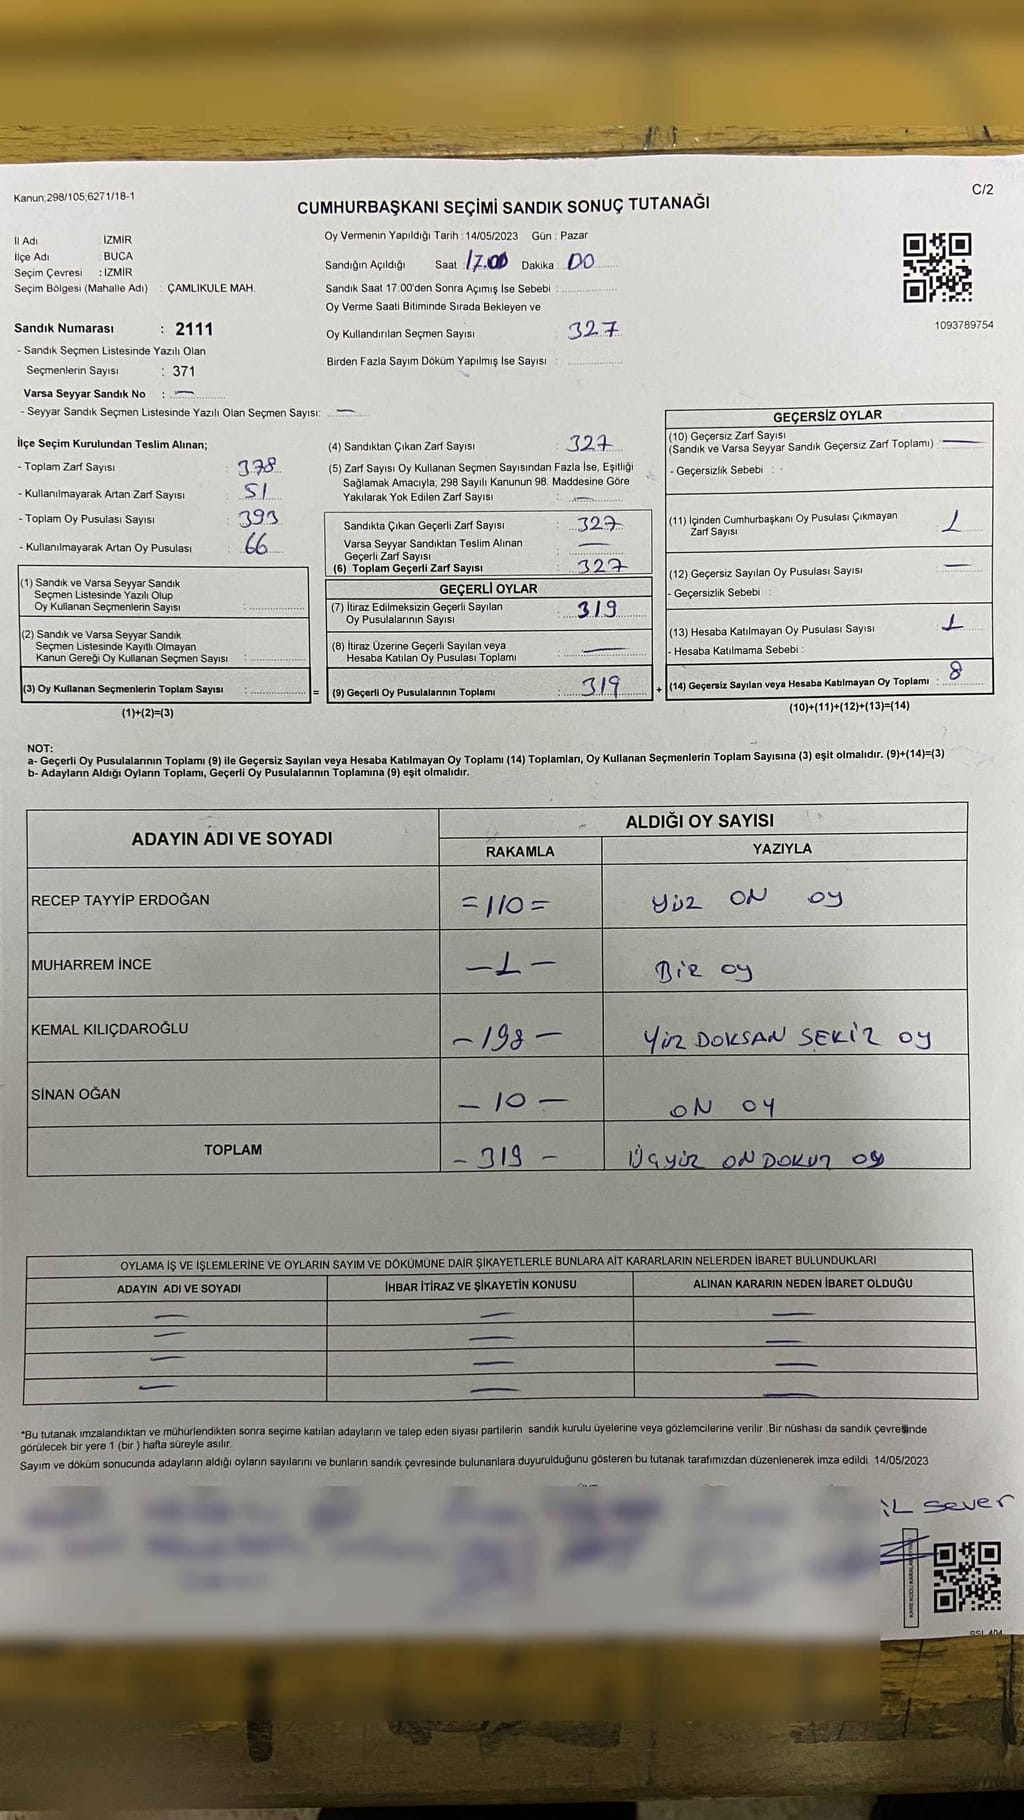 Kanun;298/105;6271/18-1
C/2
CUMHURBAŞKANI SEÇİMİ SANDIK SONUÇ TUTANAĞI
İl Adı : İZMİR
İlçe Adı : BUCA
Seçim Çevresi : İZMİR
Seçim Bölgesi (Mahalle Adı) : ÇAMLIKULE MAH.
Sandık Numarası : 2111
- Sandık Seçmen Listesinde Yazılı Olan
Seçmenlerin Sayısı : 371
Varsa Seyyar Sandık No : —
- Seyyar Sandık Seçmen Listesinde Yazılı Olan Seçmen Sayısı: —
Oy Vermenin Yapıldığı Tarih : 14/05/2023 Gün : Pazar
Sandığın Açıldığı Saat 17.00 Dakika : 00
Sandık Saat 17:00'den Sonra Açımış İse Sebebi :
Oy Verme Saati Bitiminde Sırada Bekleyen ve
Oy Kullandırılan Seçmen Sayısı : 327
Birden Fazla Sayım Döküm Yapılmış İse Sayısı :
1093789754
İlçe Seçim Kurulundan Teslim Alınan;
- Toplam Zarf Sayısı : 378
- Kullanılmayarak Artan Zarf Sayısı : 51
- Toplam Oy Pusulası Sayısı : 393
- Kullanılmayarak Artan Oy Pusulası : 66
(1) Sandık ve Varsa Seyyar Sandık
Seçmen Listesinde Yazılı Olup
Oy Kullanan Seçmenlerin Sayısı :
(2) Sandık ve Varsa Seyyar Sandık
Seçmen Listesinde Kayıtlı Olmayan
Kanun Gereği Oy Kullanan Seçmen Sayısı :
(3) Oy Kullanan Seçmenlerin Toplam Sayısı : =
(1)+(2)=(3)
(4) Sandıktan Çıkan Zarf Sayısı : 327
(5) Zarf Sayısı Oy Kullanan Seçmen Sayısından Fazla İse, Eşitliği
Sağlamak Amacıyla; 298 Sayılı Kanunun 98. Maddesine Göre
Yakılarak Yok Edilen Zarf Sayısı : —
Sandıkta Çıkan Geçerli Zarf Sayısı : 327
Varsa Seyyar Sandıktan Teslim Alınan
Geçerli Zarf Sayısı : —
(6) Toplam Geçerli Zarf Sayısı : 327
GEÇERLİ OYLAR
(7) İtiraz Edilmeksizin Geçerli Sayılan
Oy Pusulalarının Sayısı : 319
(8) İtiraz Üzerine Geçerli Sayılan veya
Hesaba Katılan Oy Pusulası Toplamı : —
(9) Geçerli Oy Pusulalarının Toplamı : 319 +
GEÇERSİZ OYLAR
(10) Geçersiz Zarf Sayısı
(Sandık ve Varsa Seyyar Sandık Geçersiz Zarf Toplamı) : —
- Geçersizlik Sebebi :
(11) İçinden Cumhurbaşkanı Oy Pusulası Çıkmayan
Zarf Sayısı : 1
(12) Geçersiz Sayılan Oy Pusulası Sayısı : —
- Geçersizlik Sebebi :
(13) Hesaba Katılmayan Oy Pusulası Sayısı : 1
- Hesaba Katılmama Sebebi :
(14) Geçersiz Sayılan veya Hesaba Katılmayan Oy Toplamı : 8
(10)+(11)+(12)+(13)=(14)
NOT:
a- Geçerli Oy Pusulalarının Toplamı (9) ile Geçersiz Sayılan veya Hesaba Katılmayan Oy Toplamı (14) Toplamları, Oy Kullanan Seçmenlerin Toplam Sayısına (3) eşit olmalıdır. (9)+(14)=(3)
b- Adayların Aldığı Oyların Toplamı, Geçerli Oy Pusulalarının Toplamına (9) eşit olmalıdır.
ADAYIN ADI VE SOYADI
ALDIĞI OY SAYISI
RAKAMLA YAZIYLA
RECEP TAYYİP ERDOĞAN =110= Yüz ON oy
MUHARREM İNCE —1— BİR oy
KEMAL KILIÇDAROĞLU —198— Yüz DOKSAN SEKİZ oy
SİNAN OĞAN —10— ON OY
TOPLAM —319— Üçyüz ONDOKUZ oy
OYLAMA İŞ VE İŞLEMLERİNE VE OYLARIN SAYIM VE DÖKÜMÜNE DAİR ŞİKAYETLERLE BUNLARA AİT KARARLARIN NELERDEN İBARET BULUNDUKLARI
ADAYIN ADI VE SOYADI İHBAR İTİRAZ VE ŞİKAYETİN KONUSU ALINAN KARARIN NEDEN İBARET OLDUĞU
— — —
— — —
— — —
— — —
*Bu tutanak imzalandıktan ve mühürlendikten sonra seçime katılan adayların ve talep eden siyasi partilerin sandık kurulu üyelerine veya gözlemcilerine verilir. Bir nüshası da sandık çevresinde
görülecek bir yere 1 (bir ) hafta süreyle asılır.
Sayım ve döküm sonucunda adayların aldığı oyların sayılarını ve bunların sandık çevresinde bulunanlara duyurulduğunu gösteren bu tutanak tarafımızdan düzenlenerek imza edildi. 14/05/2023
İL sever